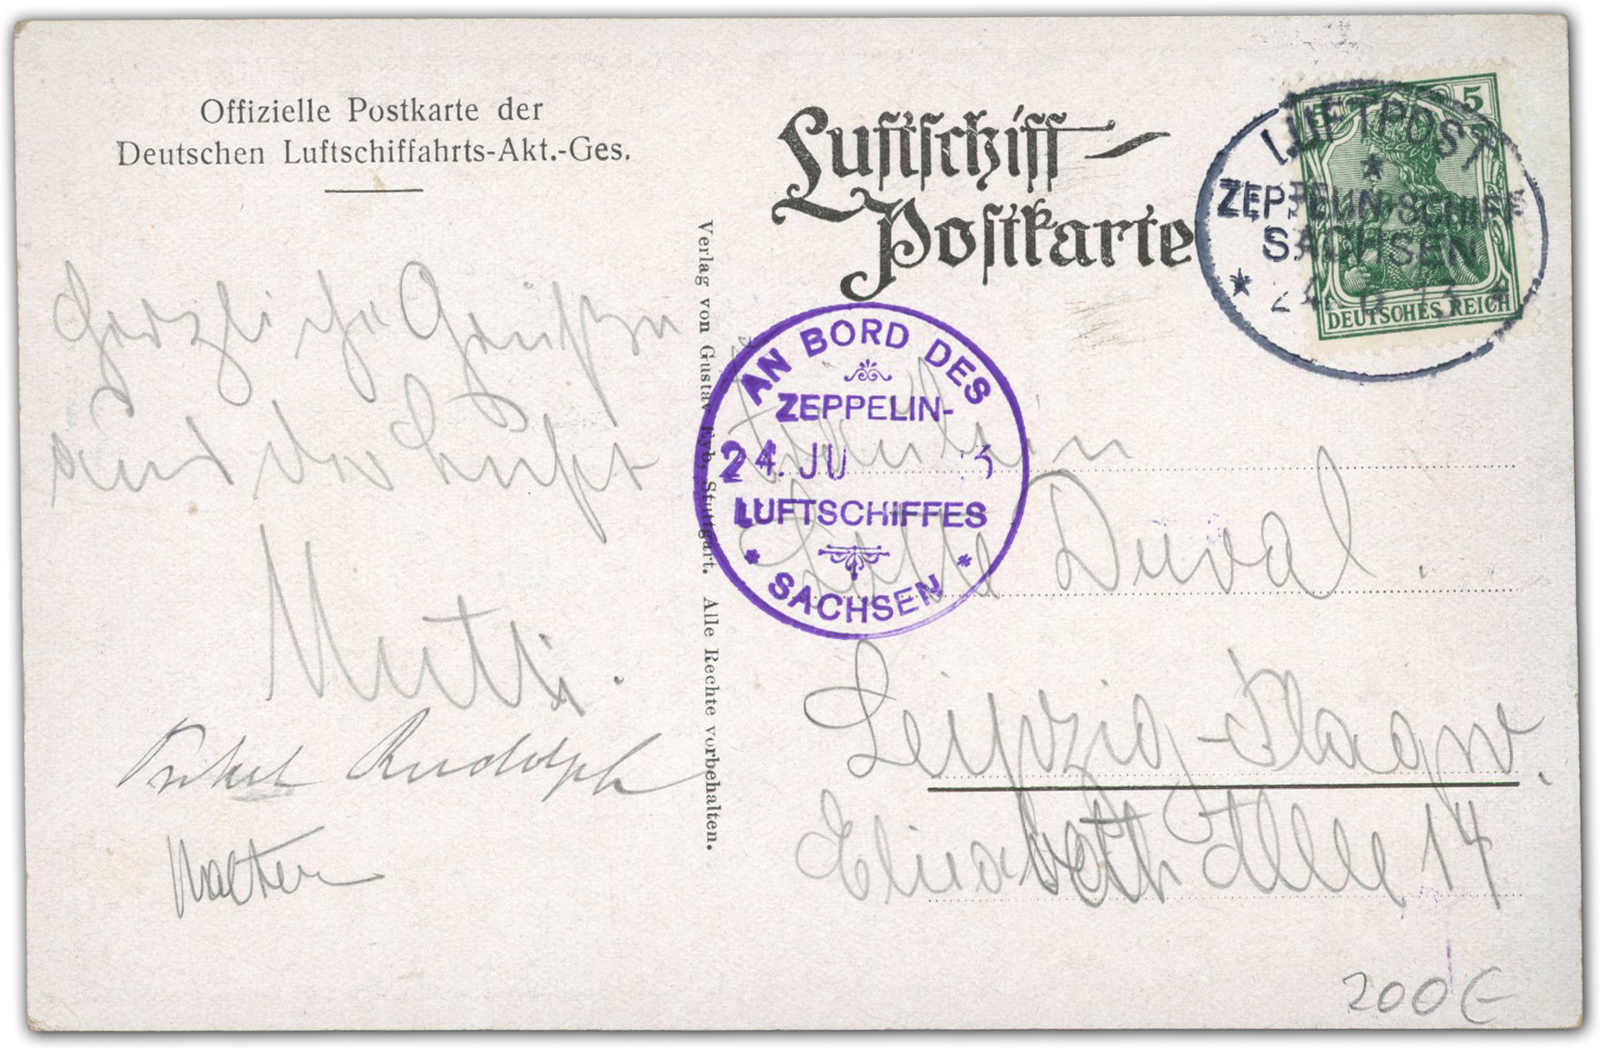 Offizielle Postkarte der
Deutschen Luftschiffahrts-Akt.-Ges.
Luftschiff-
Postkarte
LUFTPOST
ZEPPELIN-SCHIFF
SACHSEN
5
DEUTSCHES REICH
Verlag von Gustav Eyb, Stuttgart. Alle Rechte vorbehalten.
AN BORD DES
ZEPPELIN-
24. JU 3
LUFTSCHIFFES
SACHSEN
Herzliche Grüße
aus der Luft
Mutti.
Rudolph
Walter
Fräulein
Duval.
Leipzig-Plagw.
Elisabeth Allee 14
200€